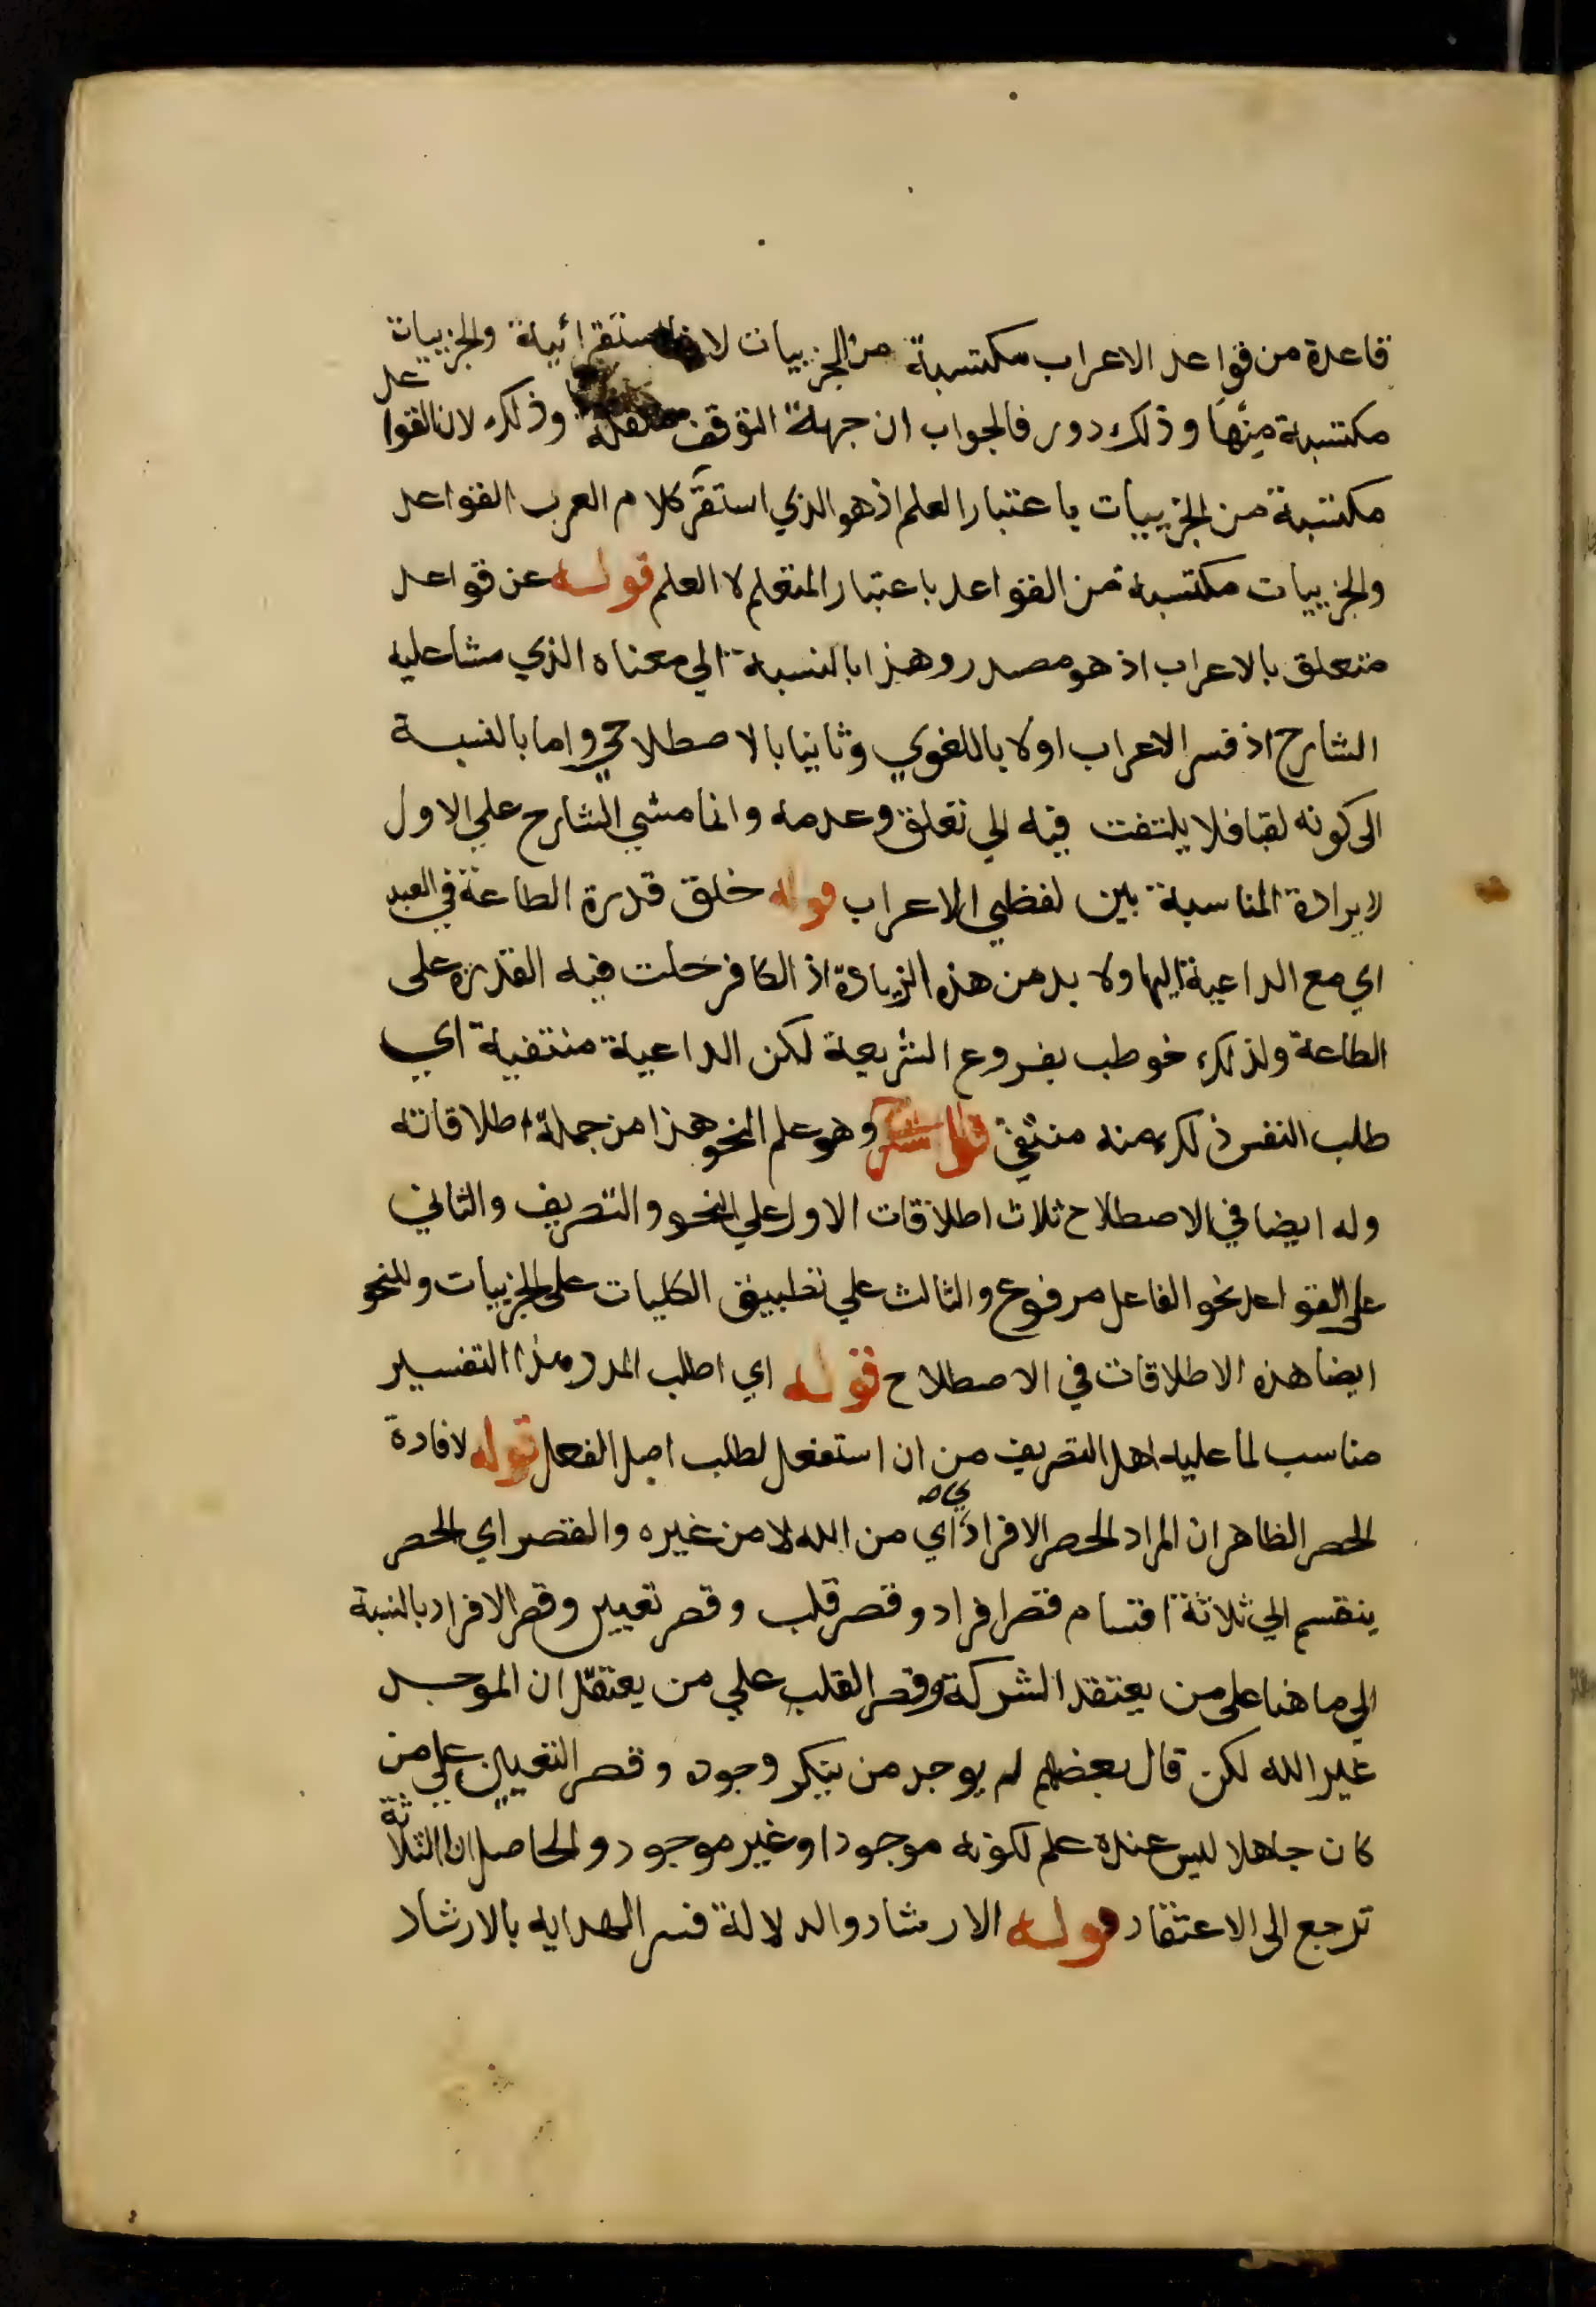 قاعدة من قواعد الاعراب مكتسبة من الجزييات لانها استقرائية والجزييات
مكتسبة منها وذلك دور فالجواب ان جهة التوقف وذلك لان القواعد
مكتسبة من الجزييات باعتبار العلم اذ هو الذي استقر كلام العرب القواعد
والجزييات مكتسبة من القواعد باعتبار المتعلم لا العلم قوله عن قواعد
متعلق بالاعراب اذ هو مصدر وهذا بالنسبة الي معناه الذي مشا عليه
الشارح اذ فسر الاعراب اولا باللغوي وثانيا بالاصطلاحي واما بالنسبة
الى كونه لقبا فلا يلتفت فيه الي تعلق وعدمه وانما مشي الشارح علي الاول
لايرادة المناسبة بين لفظي الاعراب قوله خلق قدرة الطاعة في العبد
اي مع الداعية اليها ولا بد من هذه الزيادة اذ الكافر حلت فيه القدرة على
الطاعة ولذلك خوطب بفروع الشريعة لكن الداعية منتفية اي
طلب النفس ذلك منه منتفي وهو علم النحو هذا من جملة اطلاقاته
وله ايضا في الاصطلاح ثلاث اطلاقات الاول علي النحو والتصريف والثاني
على القواعد نحو الفاعل مرفوع والثالث علي تطبيق الكليات على الجزييات وللنحو
ايضا هذه الاطلاقات في الاصطلاح قوله اي اطلب المدد وهذا التفسير
مناسب لما عليه اهل التصريف من ان استفعل لطلب اصل الفعل قوله لافادة
الحصر الظاهر ان المراد الحصر الافرادي اي من الله لا من غيره والقصر اي الحصر
ينقسم الي ثلاثة اقسام قصر افراد وقصر قلب وقصر تعيين وقصر الافراد بالنسبة
الي ما هنا على من يعتقد الشركة وقصر القلب علي من يعتقد ان الموجد
غير الله لكن قال بعضهم لم يوجد من ينكر وجوده وقصر التعيين علي من
كان جاهلا ليس عنده علم لكونه موجودا وغير موجود والحاصل ان الثلاثة
ترجع الى الاعتقاد قوله الارشاد والدلالة فسر الهدايه بالارشاد